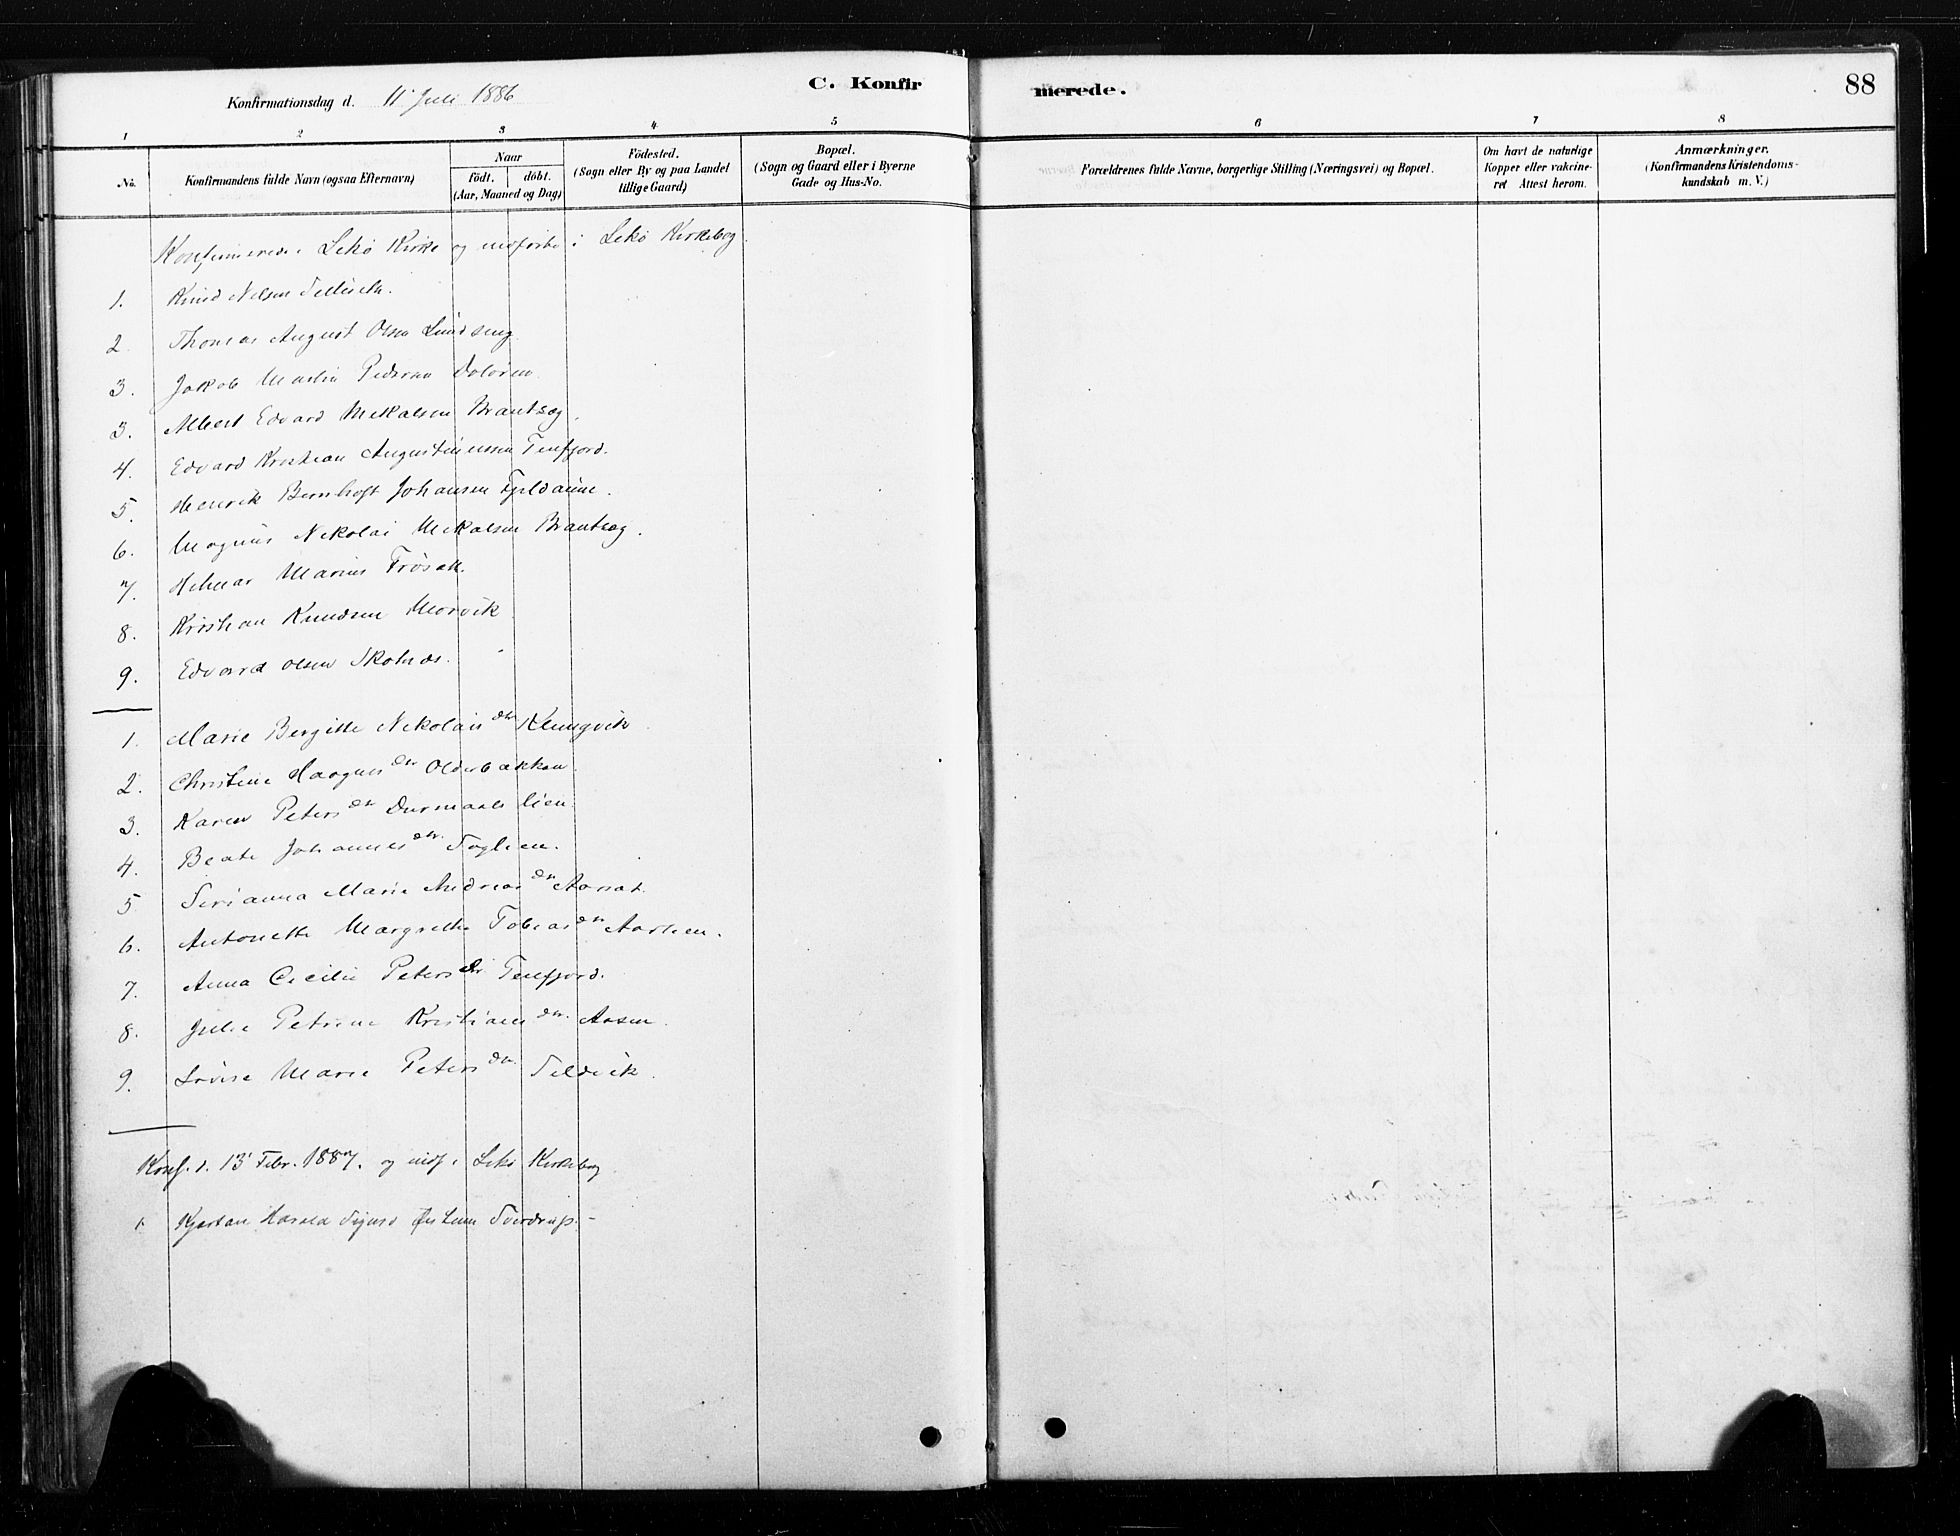 Konfirmationsdag d. 11' Juli 1886
C. Konfirmerede.
88
1 2 3 4 5 6 7 8
No.
Konfirmandens fulde Navn (ogsaa Efternavn)
Naar
födt. döbt.
(Aar, Maaned og Dag)
Födested.
(Sogn eller By og paa Landet
tillige Gaard)
Bopæl.
(Sogn og Gaard eller i Byerne
Gade og Hus-No.
Forældrenes fulde Navne, borgerlige Stilling (Næringsvei) og Bopæl.
Om havt de naturlige
Kopper eller vakcine-
ret Attest herom.
Anmærkninger.
(Konfirmandens Kristendoms-
kundskab m. V.)
Konfirmerede i Lekö Kirke og indförte i Lekö Kirkebog
1. Knud Nilsen
2. Thomas August Olsen Lindseng
3. Jakob Martin Pedersen
3. Albert Edvard Mikalsen Brantzæg.
4. Edvard Kristian Augustinussen Terfjord.
5. Henrik Bernhoft Johansen
6. Magnus Nikolai Mikalsen Brantzæg.
7. Hilmar Marius Frösak.
8. Kristian Knudsen Morvik
9. Edvard Olsen Skotnes.
1. Marie Bergitte Nikolais dtr Klungvik
2. Christine Haagens dtr Olderbakken
3. Karen Peters dtr Durmaalslien.
4. Beate Johannes dtr. Foglien.
5. Serianna Marie Andreas dtr Aarsat.
6. Antonette Margrethe Tobias dtr Aarlien.
7. Anna Cecilie Peters dtr Terfjord.
8. Julie Petrine Kristians dtr. Aasen.
9. Lovise Marie Peters dtr. Selvik.
Konf. d. 13' Febr. 1887. og indf. i Lekö Kirkebog
1. Kjartan Harald Sigurd Östein Sverdrup. -